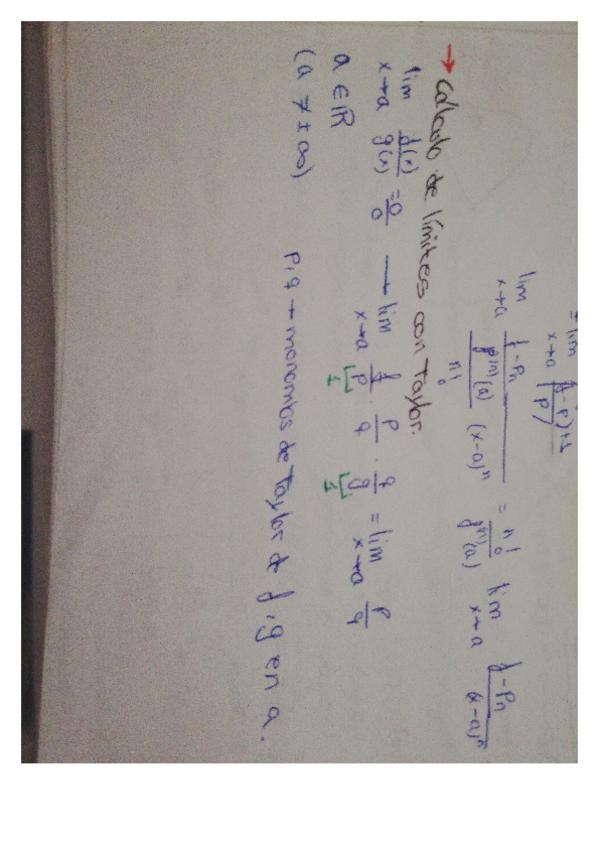 = lim x→a (f-p)/p + 1
lim x→a (f-Pn)/(f⁽ⁿ⁾(a)/n! (x-a)ⁿ) = n!/f⁽ⁿ⁾(a) lim x→a (f-Pn)/(x-a)ⁿ
→ Cálculo de límites con Taylor.
lim x→a f(x)/g(x) = 0/0 → lim x→a f/p · p/q · q/g = lim x→a p/q
1 1
a ∈ ℝ
(a ≠ ±∞)
p,q → monomios de Taylor de f,g en a.